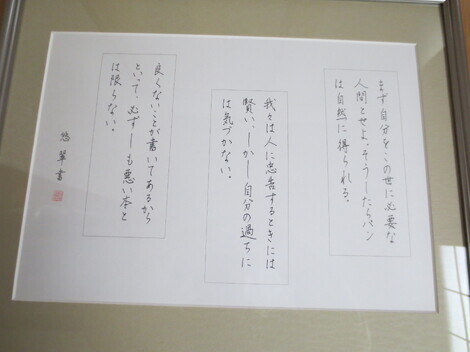 まず自分をこの世に必要な
人間とせよ、そうしたらパン
は自然に得られる。
我々は人に忠告するときには
賢い、しかし自分の過ちに
は気づかない。
良くないことが書いてあるから
といって、必ずしも悪い本と
は限らない。
翠書